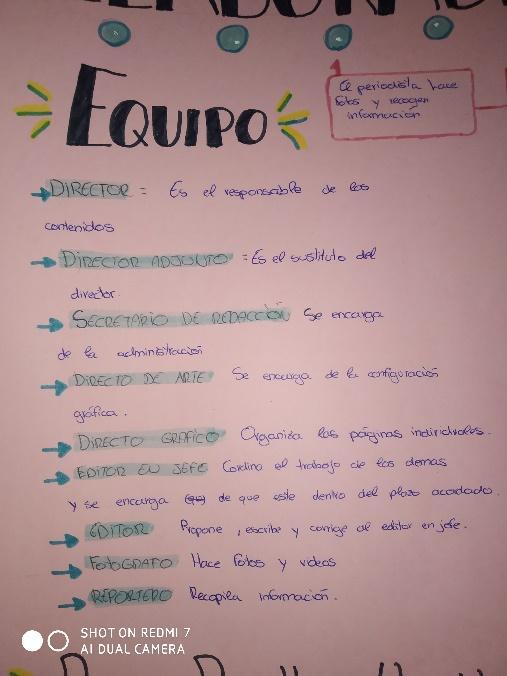 EQUIPO
El periodista hace
fotos y recogen
información
DIRECTOR = Es el responsable de los
contenidos
DIRECTOR ADJUNTO = Es el sustituto del
director.
SECRETARIO DE REDACCIÓN Se encarga
de la administración
DIRECTO DE ARTE Se encarga de la configuración
gráfica.
DIRECTO GRAFICO Organiza las páginas individuales.
EDITOR EN JEFE Cordina el trabajo de los demas
y se encarga de que este dentro del plazo acordado.
EDITOR Propone, escribe y corrige al editor en jefe.
FOTOGRAFO Hace fotos y videos
REPORTERO Recopila información.
SHOT ON REDMI 7
AI DUAL CAMERA